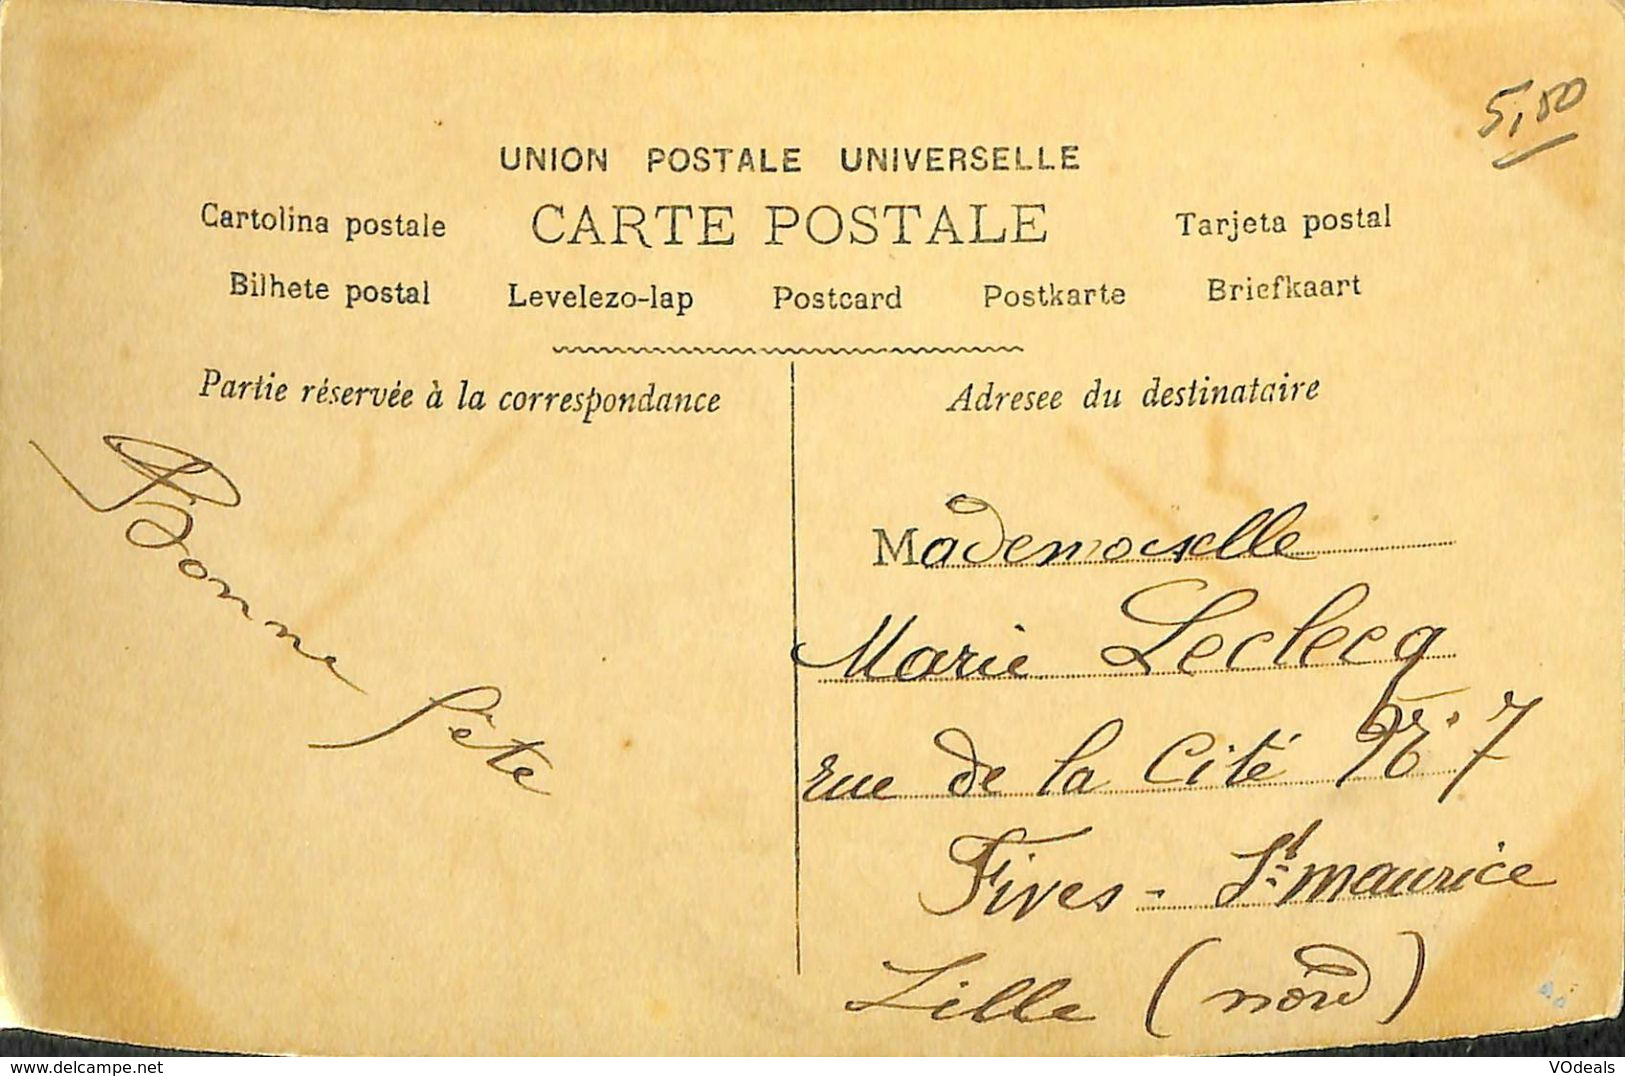 5,80
UNION POSTALE UNIVERSELLE
Cartolina postale CARTE POSTALE Tarjeta postal
Bilhete postal Levelezo-lap Postcard Postkarte Briefkaart
Partie réservée à la correspondance
Bonne fête
Adresee du destinataire
Mademoiselle
Marie Leclecq
rue de la Cité No 7
Fives - St maurice
Lille (nord)
delcampe.net
VOdeals